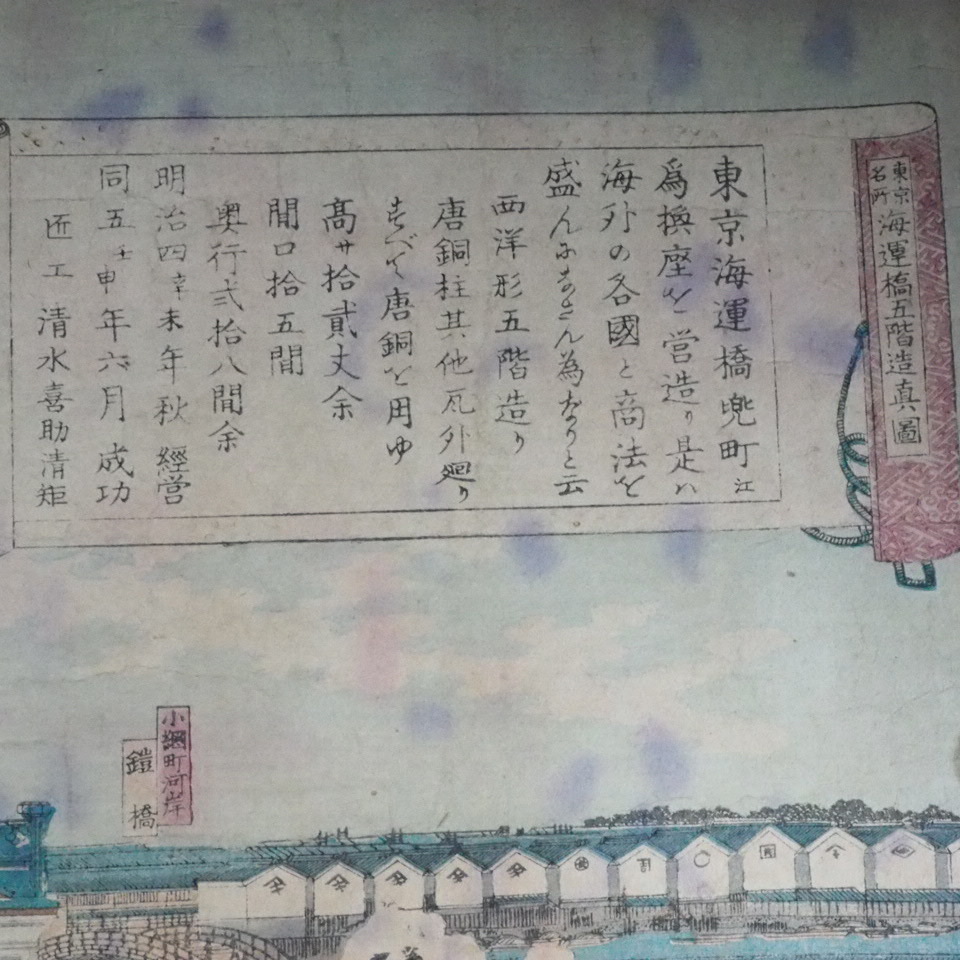 東京名所
海運橋五階造真圖
東京海運橋兜町江
為換座を営造り是ハ
海外の各國と商法を
盛んになさん為なりと云
西洋形五階造り
唐銅柱其他瓦外廻り
すべて唐銅を用ゆ
高サ拾貳丈余
間口拾五間
奥行弍拾八間余
明治四辛未年秋經営
同五壬申年六月成功
匠工清水喜助清矩
小網町河岸
鎧橋